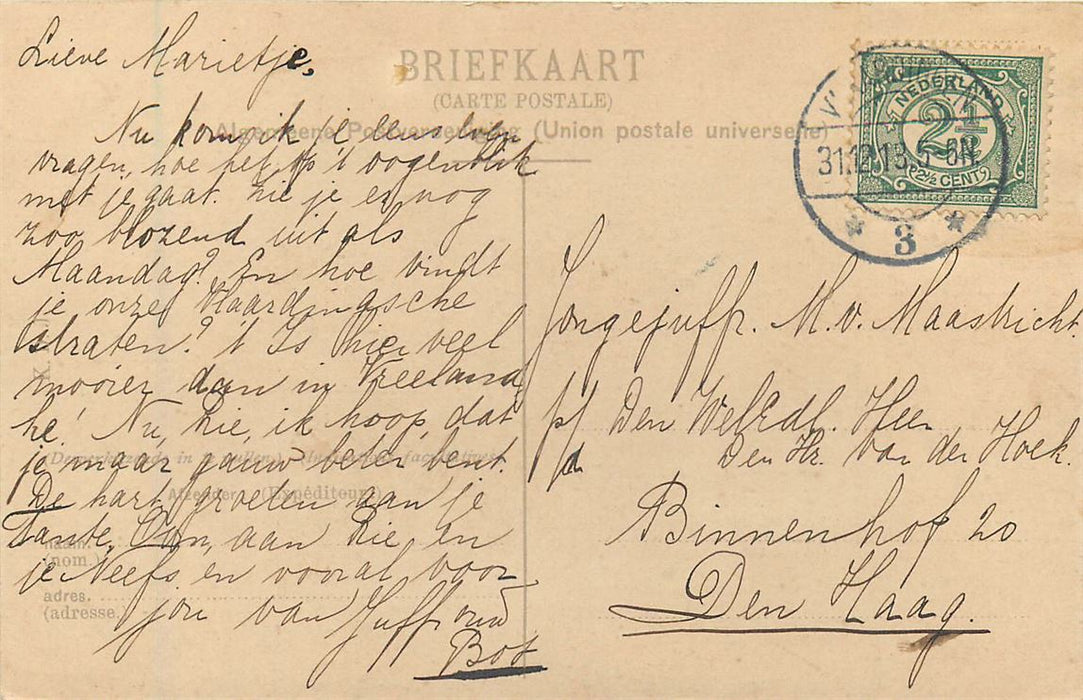 BRIEFKAART
(CARTE POSTALE)
Algemeene Postvereeniging (Union postale universelle)
NEDERLAND
2½
2½ CENT
31.12.13.5 - 6N
3
Lieve Marietje,
Nu kom ik je eens even
vragen, hoe het op 't oogenblik
met je gaat. Zie je er nog
zoo blozend uit als
Maandag? En hoe vindt
je onze Vlaardingsche
straten? 't Is hier veel
mooier dan in Vreeland
hè! Nu, Rie, ik hoop, dat
je maar gauw beter bent.
De hart. groeten aan je
Tante, Oom, aan Rie, en
je Neefs en vooral voor
jou van Juffrouw
Bot
(Desverlangende in te vullen.) (Indications facultatives)
Afzender. (Expéditeur)
naam.
(nom.)
adres.
(adresse.)
Jongejuffr. M. v. Maastricht.
p/a Den WelEdl. Heer
Den Hr. Van der Hoek.
Binnenhof 20
Den Haag.